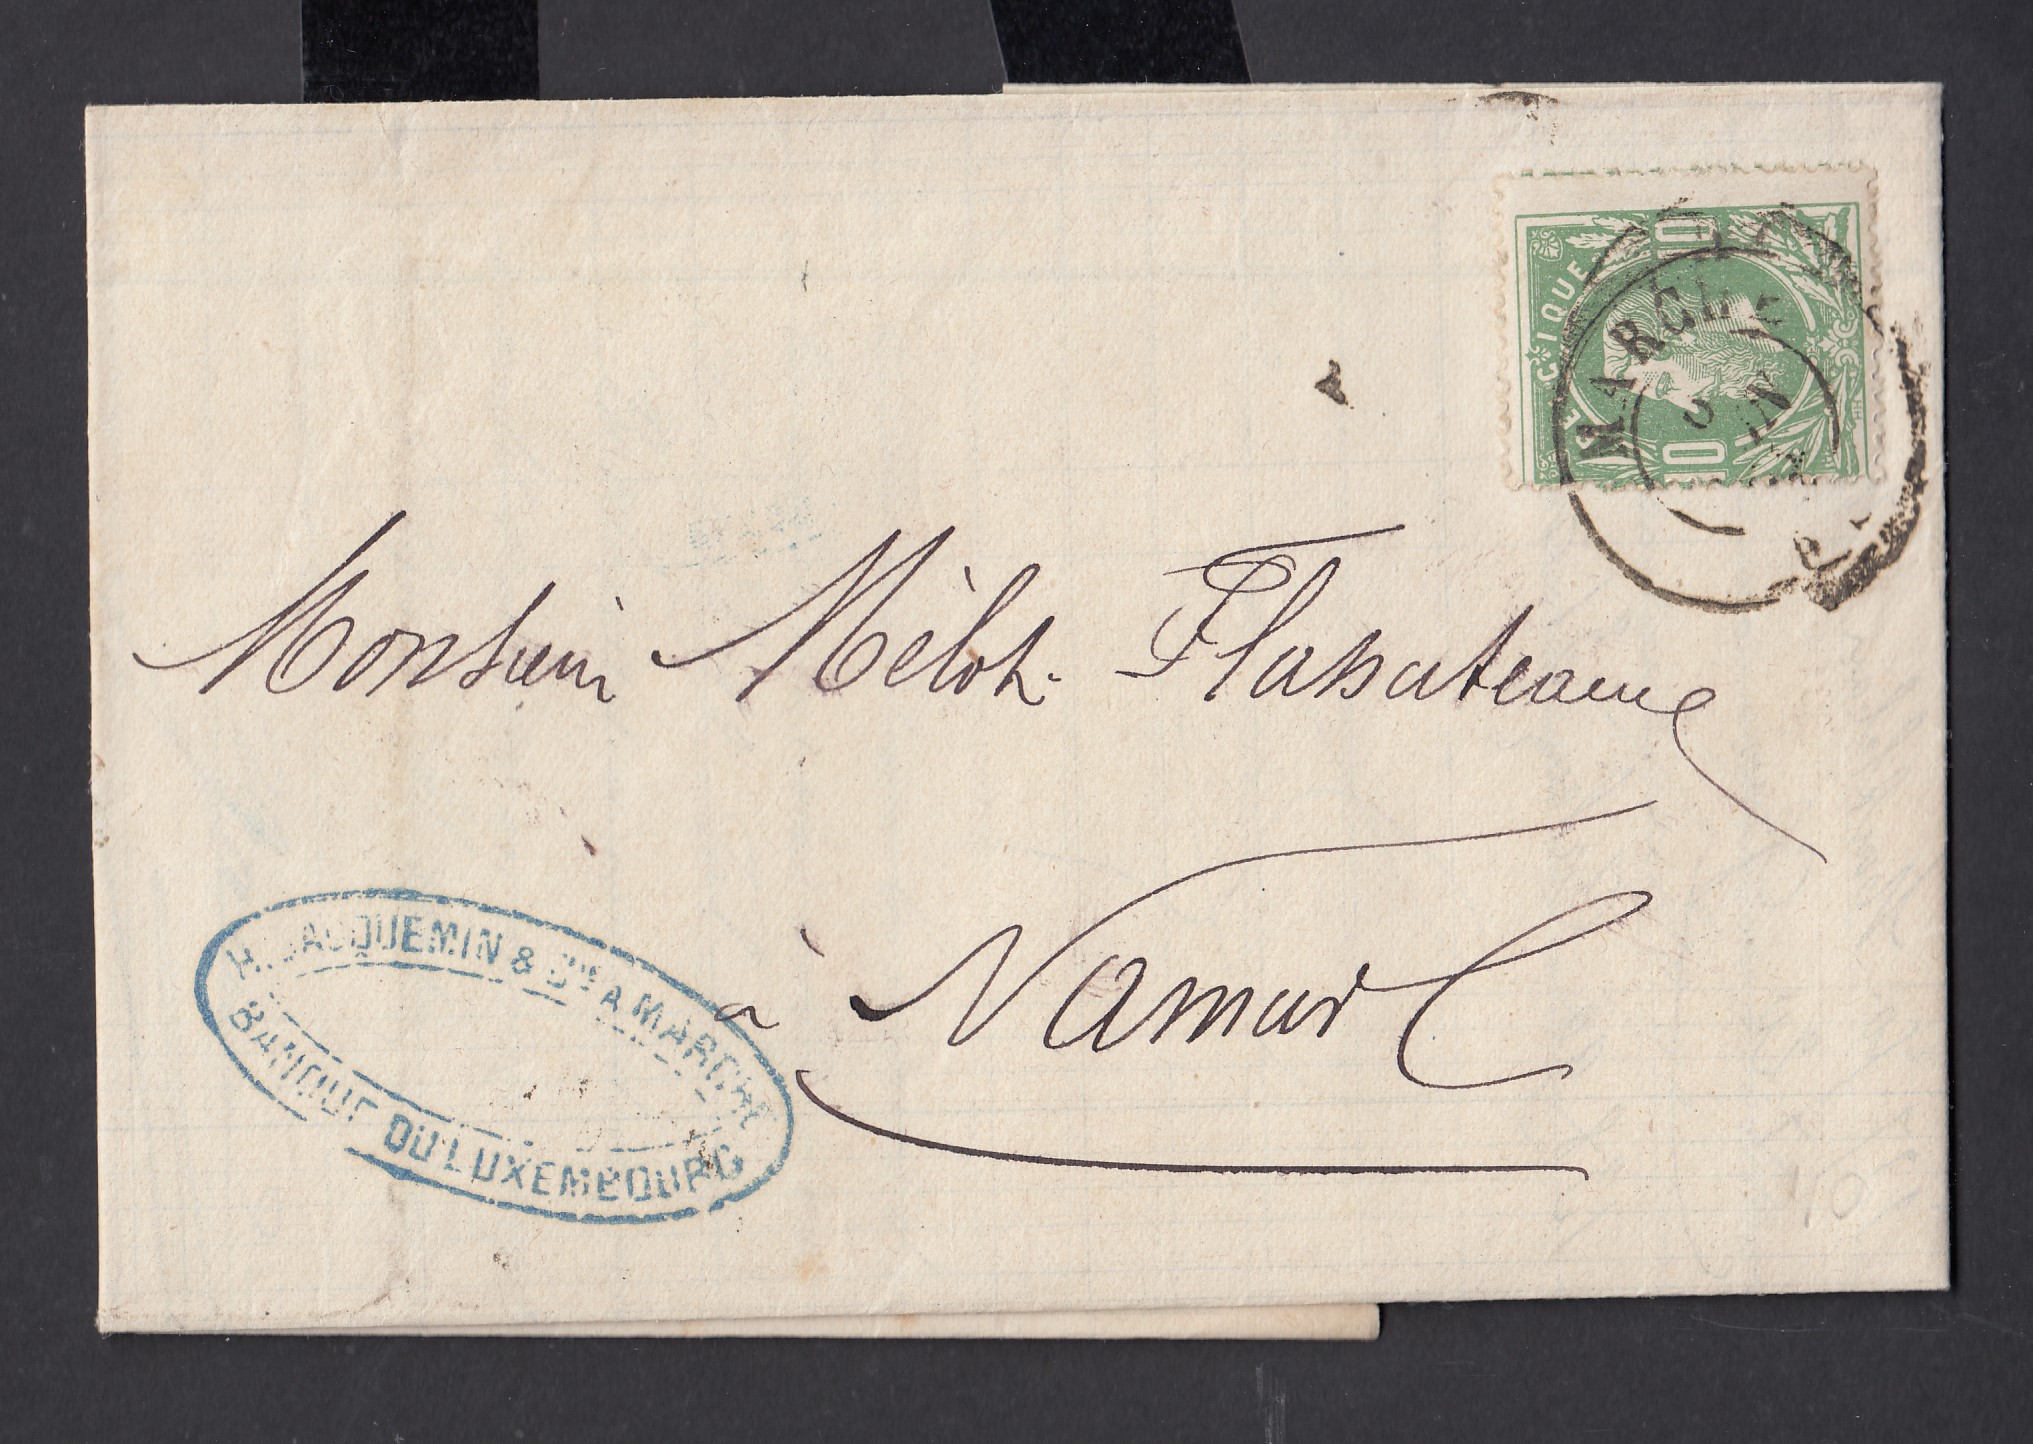 10
10
GIQUE
MARCHE
5
Monsieur Mèlot Flassateaux
à Namur
H. JACQUEMIN & Cie A MARCHE
BANQUE DU LUXEMBOURG
10